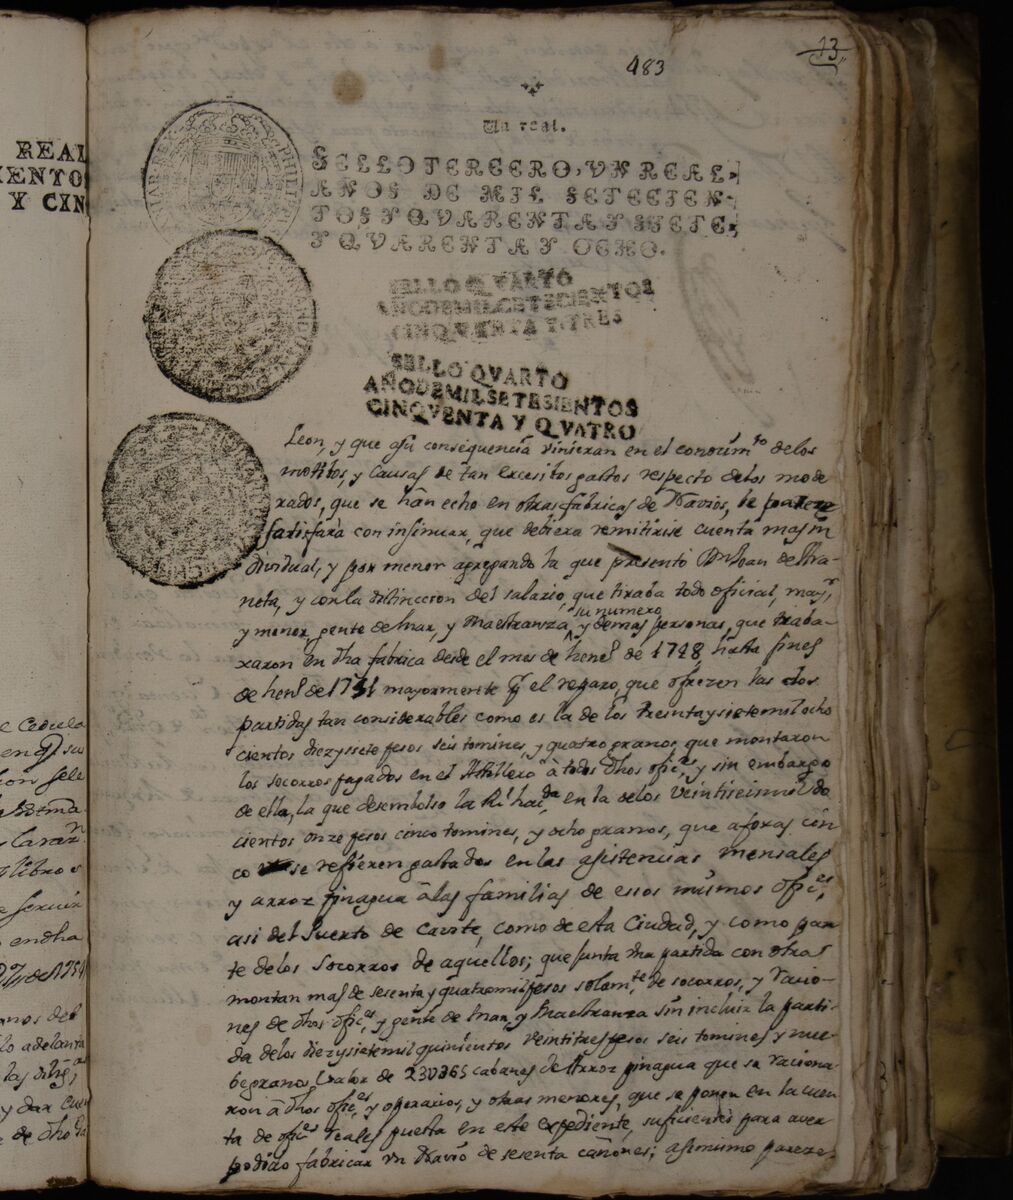 REAL
IENTO
Y CIN
483
13
Un real.
SELLO TERCERO, VN REAL
AÑOS DE MIL SETECIEN-
TOS Y QVARENTA Y SIETE,
Y QVARENTA Y OCHO.
SELLO QVARTO
AÑO DE MIL SETECIENTOS
CINQVENTA Y TRES
SELLO QVARTO
AÑO DE MIL SETESIENTOS
CINQVENTA Y QVATRO
Leon, y que asu consequencia vinieran en el conosim.to delos
motibos, y Causas de tan excesibos gastos respecto delos mode
rados, que se hán echo en otras fabricas de Navios, le parece
satisfara con insinuar, que debiera remitirse cuenta mas in
dividual, y por menor agregando la que presentó Dn Joan de Ara-
neta, y con la distinccion del salario, que tiraba todo oficial, may.r
y menor, gente de Mar, y Maestranza, su numero, y demas personas, que traba-
xaron en dha fabrica desde el mes de hen.o de 1748 hasta fines
de hen.o de 1751 mayormente el reparo, que ofrezen las dos
partidas tan considerables como es la de los treinta y siete mil ocho
cientos diez y siete pesos seis tomines, y quatro granos, que montaron
los socorros pagados en el Astillero à todos dhos ofic.es, y sin embargo
de ella, la que desembolso la Rl haz.da en la delos veintiseis mil do
cientos onze pesos cinco tomines, y ocho granos, que a foxas cin
co se refieren gastados en las asistencias mensales
y arroz pinagua à las familias de esos mismos ofic.es,
asi del Puerto de Cavite, como de esta Ciudad, y como par
te delos socorros de aquellos; que junta dha partida con otras
montan mas de sesenta y quatro mil pesos solam.te de socorros, y racio-
nes de dhos ofic.es, y gente de Mar, y Maestranza sin incluir la parti-
da delos diez y siete mil quinientos veintitres pesos seis tomines y nue-
be granos valor de 230365 cabanes de Arroz pinagua que se raciona-
ron à dhos ofic.es, y operarios, y otras menores, que se ponen en la cuen
ta de ofic.es reales puesta en este expediente, suficientes para aver
podido fabricar un Navio de sesenta cañones; asimismo pareze